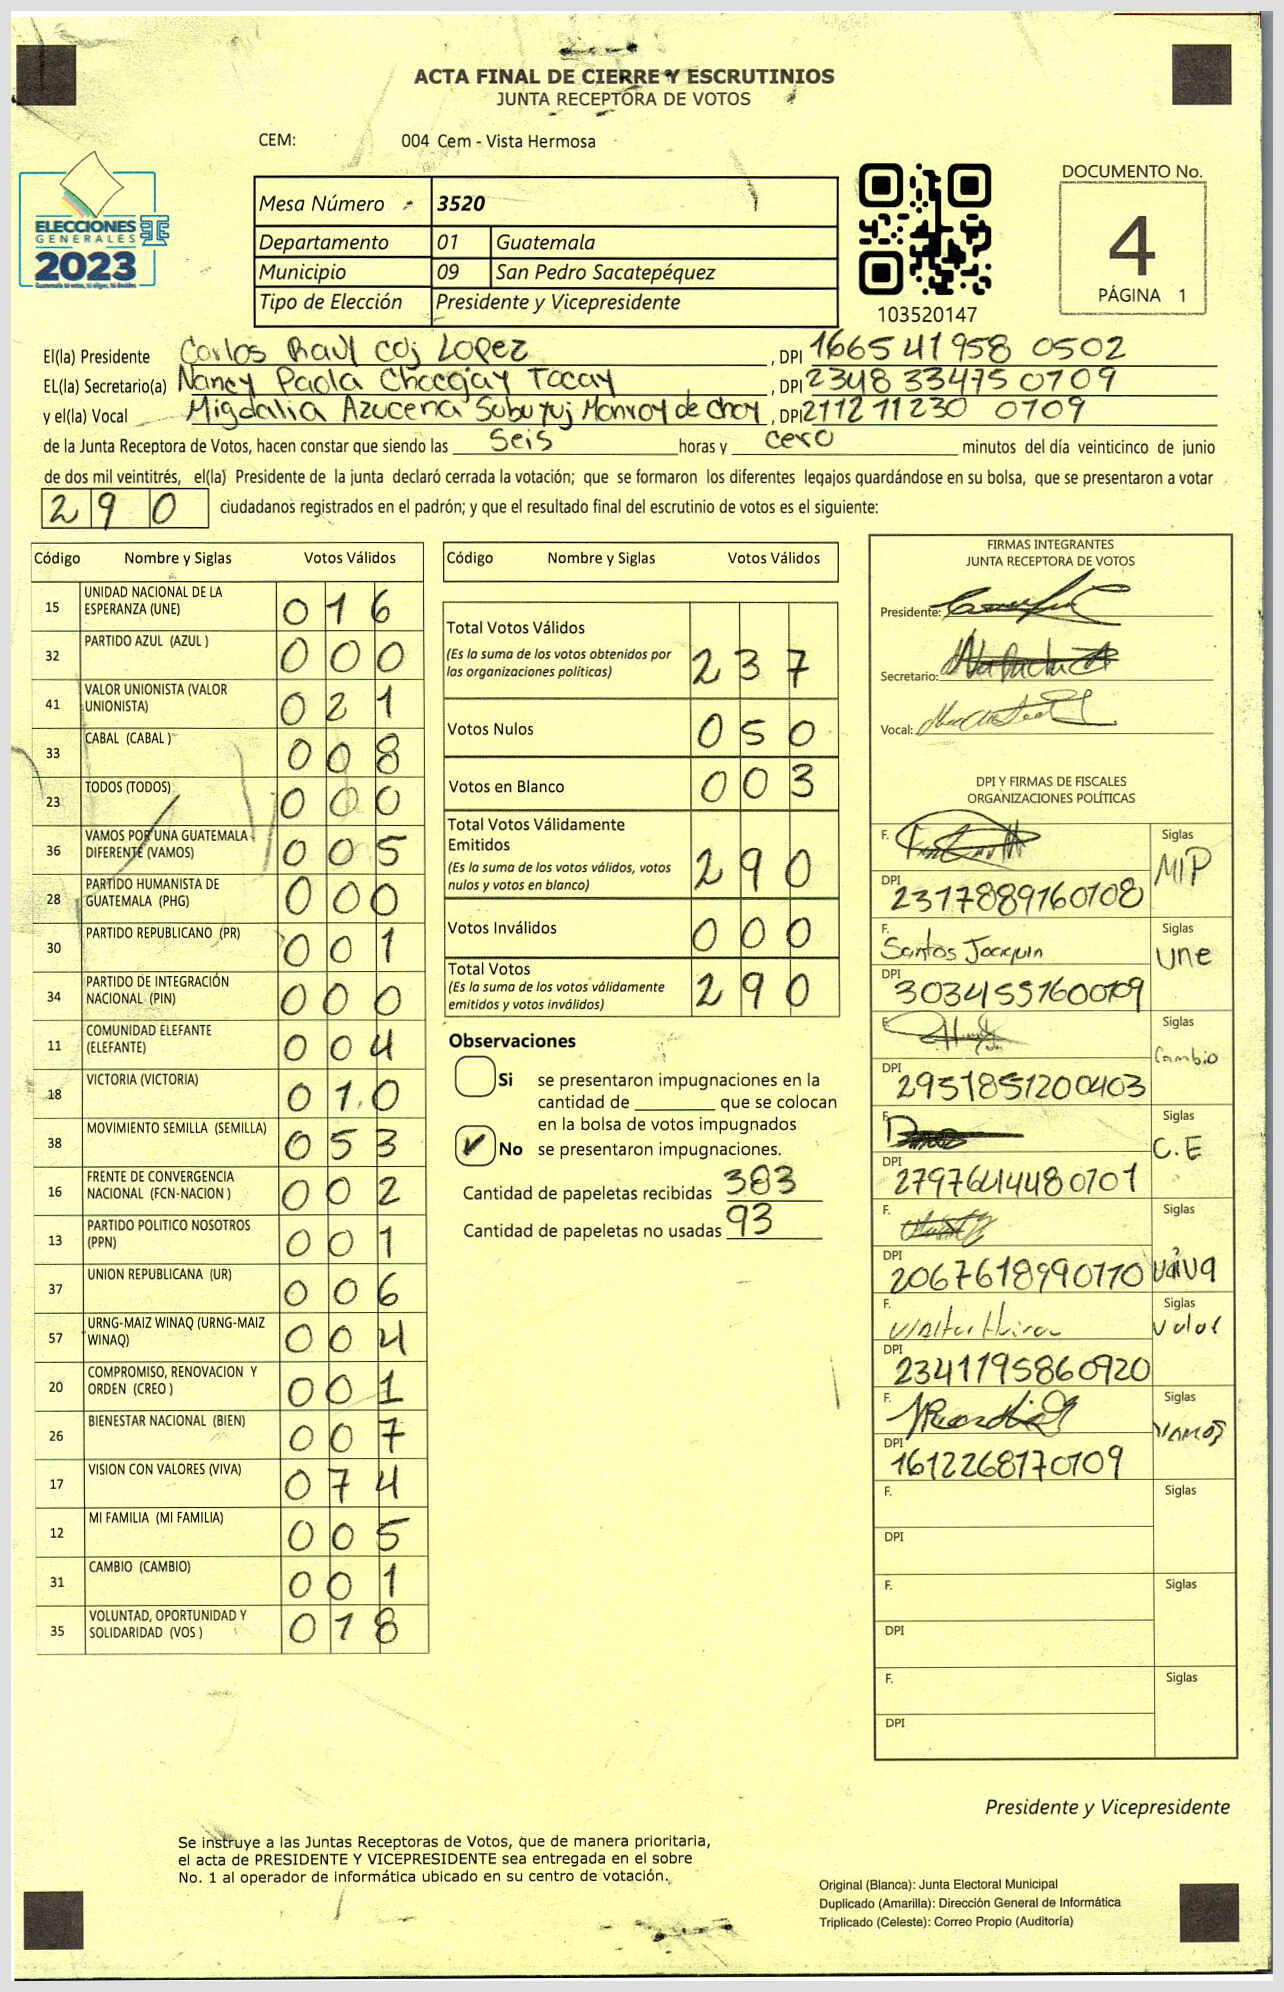 ACTA FINAL DE CIERRE Y ESCRUTINIOS
JUNTA RECEPTORA DE VOTOS
CEM: 004 Cem - Vista Hermosa
ELECCIONES
GENERALES
2023
Mesa Número 3520
Departamento 01 Guatemala
Municipio 09 San Pedro Sacatepéquez
Tipo de Elección Presidente y Vicepresidente
103520147
DOCUMENTO No.
4
PÁGINA 1
El(la) Presidente Carlos Raúl Coj Lopez, DPI 1665 41958 0502
EL(la) Secretario(a) Nancy Paola Chocojay Tocay, DPI 2348 33475 0709
y el(la) Vocal Migdalia Azucena Subuyuj Monroy de Choy, DPI 2112 11230 0709
de la Junta Receptora de Votos, hacen constar que siendo las seis horas y cero minutos del día veinticinco de junio
de dos mil veintitrés, el(la) Presidente de la junta declaró cerrada la votación; que se formaron los diferentes legajos guardándose en su bolsa, que se presentaron a votar
290 ciudadanos registrados en el padrón; y que el resultado final del escrutinio de votos es el siguiente:
Código Nombre y Siglas Votos Válidos
15 UNIDAD NACIONAL DE LA ESPERANZA (UNE) 016
32 PARTIDO AZUL (AZUL ) 000
41 VALOR UNIONISTA (VALOR UNIONISTA) 021
33 CABAL (CABAL ) 008
23 TODOS (TODOS) 000
36 VAMOS POR UNA GUATEMALA DIFERENTE (VAMOS) 005
28 PARTIDO HUMANISTA DE GUATEMALA (PHG) 000
30 PARTIDO REPUBLICANO (PR) 001
34 PARTIDO DE INTEGRACIÓN NACIONAL (PIN) 000
11 COMUNIDAD ELEFANTE (ELEFANTE) 004
18 VICTORIA (VICTORIA) 010
38 MOVIMIENTO SEMILLA (SEMILLA) 053
16 FRENTE DE CONVERGENCIA NACIONAL (FCN-NACION ) 002
13 PARTIDO POLITICO NOSOTROS (PPN) 001
37 UNION REPUBLICANA (UR) 006
57 URNG-MAIZ WINAQ (URNG-MAIZ WINAQ) 004
20 COMPROMISO, RENOVACION Y ORDEN (CREO ) 001
26 BIENESTAR NACIONAL (BIEN) 007
17 VISION CON VALORES (VIVA) 074
12 MI FAMILIA (MI FAMILIA) 005
31 CAMBIO (CAMBIO) 001
35 VOLUNTAD, OPORTUNIDAD Y SOLIDARIDAD (VOS ) 018
Código Nombre y Siglas Votos Válidos
Total Votos Válidos 237
(Es la suma de los votos obtenidos por
las organizaciones políticas)
Votos Nulos 050
Votos en Blanco 003
Total Votos Válidamente
Emitidos 290
(Es la suma de los votos válidos, votos
nulos y votos en blanco)
Votos Inválidos 000
Total Votos 290
(Es la suma de los votos válidamente
emitidos y votos inválidos)
Observaciones
Si se presentaron impugnaciones en la
cantidad de ________ que se colocan
en la bolsa de votos impugnados
✓ No se presentaron impugnaciones.
Cantidad de papeletas recibidas 383
Cantidad de papeletas no usadas 93
FIRMAS INTEGRANTES
JUNTA RECEPTORA DE VOTOS
Presidente:
Secretario:
Vocal:
DPI Y FIRMAS DE FISCALES
ORGANIZACIONES POLÍTICAS
F. Siglas MIP
DPI 2317889160108
F. Santos Joaquin Siglas Une
DPI 3034551600109
F. Siglas Cambio
DPI 2951851200403
F. Siglas C.E
DPI 2797641480101
F. Siglas Viva
DPI 2067618990110
F. Siglas Valor
DPI 2341195860920
F. Siglas VAMOS
DPI 1612268170109
F. Siglas
DPI
F. Siglas
DPI
F. Siglas
DPI
Presidente y Vicepresidente
Se instruye a las Juntas Receptoras de Votos, que de manera prioritaria,
el acta de PRESIDENTE Y VICEPRESIDENTE sea entregada en el sobre
No. 1 al operador de informática ubicado en su centro de votación.
Original (Blanca): Junta Electoral Municipal
Duplicado (Amarilla): Dirección General de Informática
Triplicado (Celeste): Correo Propio (Auditoría)